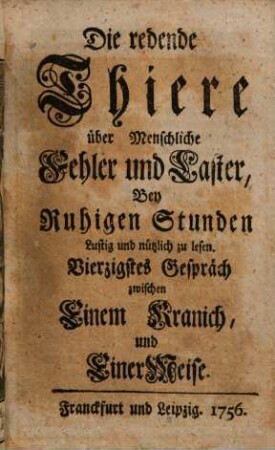 Die redende
Thiere
über Menschliche
Fehler und Laster,
Bey
Ruhigen Stunden
Lustig und nützlich zu lesen.
Vierzigstes Gespräch
zwischen
Einem Kranich,
und
Einer Meise.
Franckfurt und Leipzig. 1756.